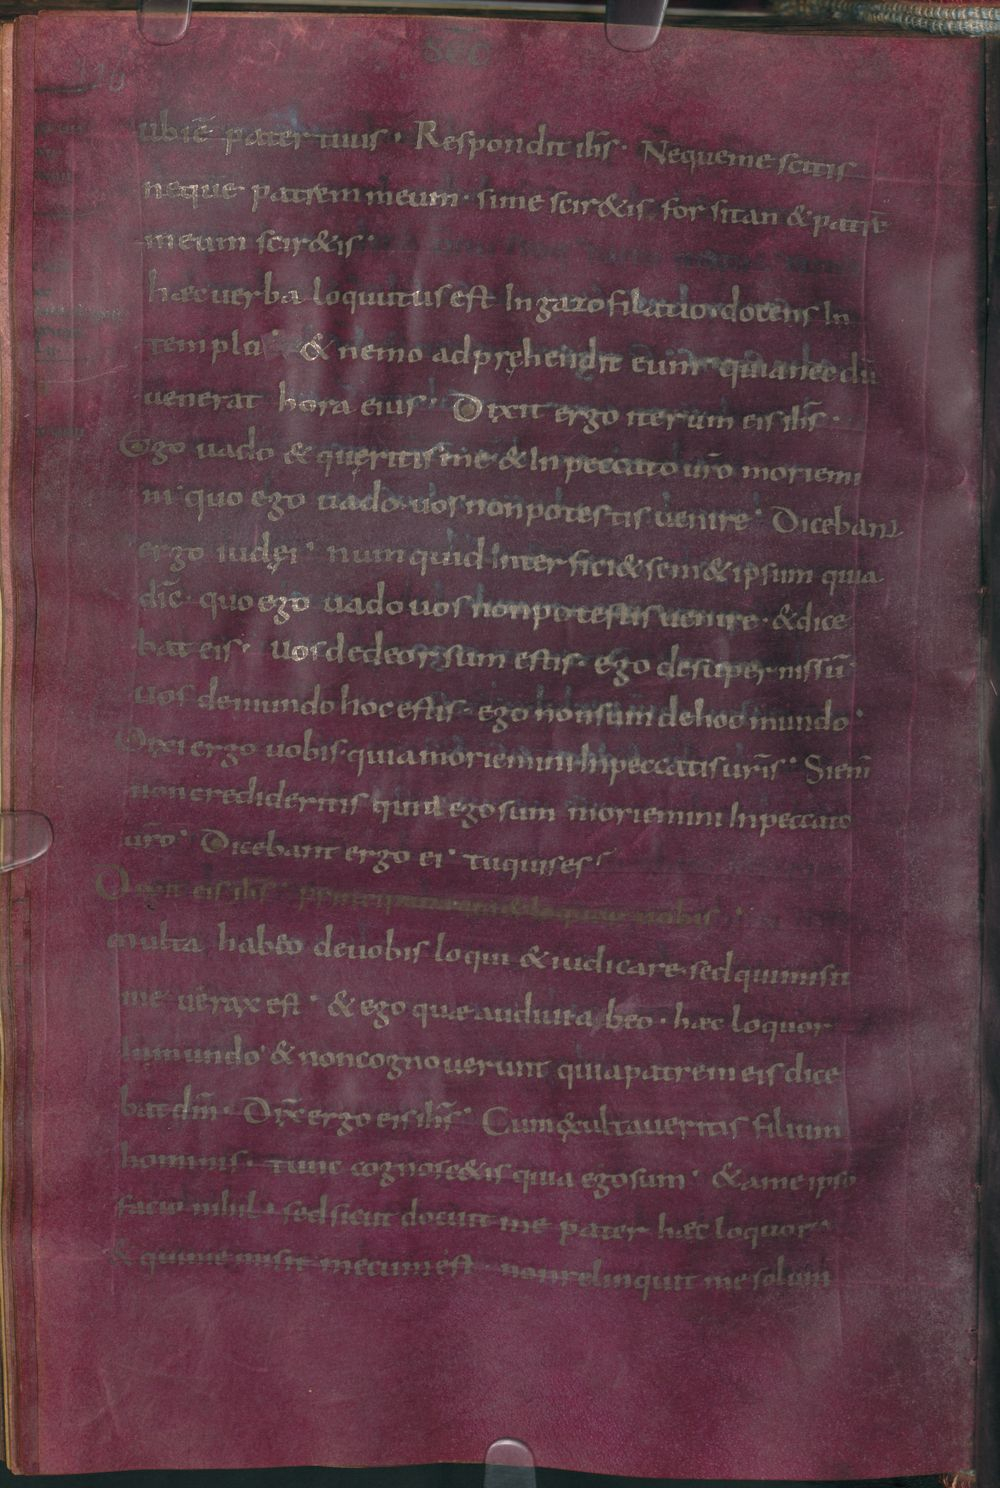 116
SEC̄
ubiē pater tuus · Respondit ihs̄ · Neque me scitis
neque patrem meum · si me scir&is forsitan & patrē
meum scir&is ·
hæc uerba loquutus est In gazofilatio · docens In
templo · & nemo adpręhendit eum · quia nec dū
uenerat hora eius · Dixit ergo iterum eis ihs̄ ·
Ego uado & quęritis me & In peccato uro̅ moriemi
ni · quo ego uado uos non potestis uenire · Dicebant
ergo iudęi · num quid Interfici& sem&ipsum quia
dic̄ · quo ego uado uos non potestis uenire · & dice
bat eis · uos de deorsum estis · ego de supernis sū
uos de mundo hoc estis · ego non sum de hoc mundo ·
Dixi ergo uobis · quia moriemini In peccatis uris̄ · Si eni̅
non credideritis quia ego sum moriemini In peccato
uro̅ · Dicebant ergo ei · tu quis es
Dixit eis ihs̄ · principium & loquor uobis ·
multa habeo de uobis loqui & iudicare · sed qui misit
me uerax est · & ego quæ audiui ab eo · hæc loquor
In mundo · & non cognouerunt quia patrem eis dice
bat dm̄ · Dix̄ ergo eis ihs̄ · Cum exaltaueritis filium
hominis · tunc cognosc&is quia ego sum · & a me ipso
facio nihil · sed sicut docuit me pater hæc loquor ·
& qui me misit mecum est · non relinquit me solum